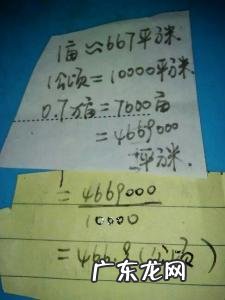 1亩≈667平方米
1公顷=10000平方米
0.7万亩=7000亩
=4669000
平方米.
=4669000
10000
=466.9(公顷)
广东龙网